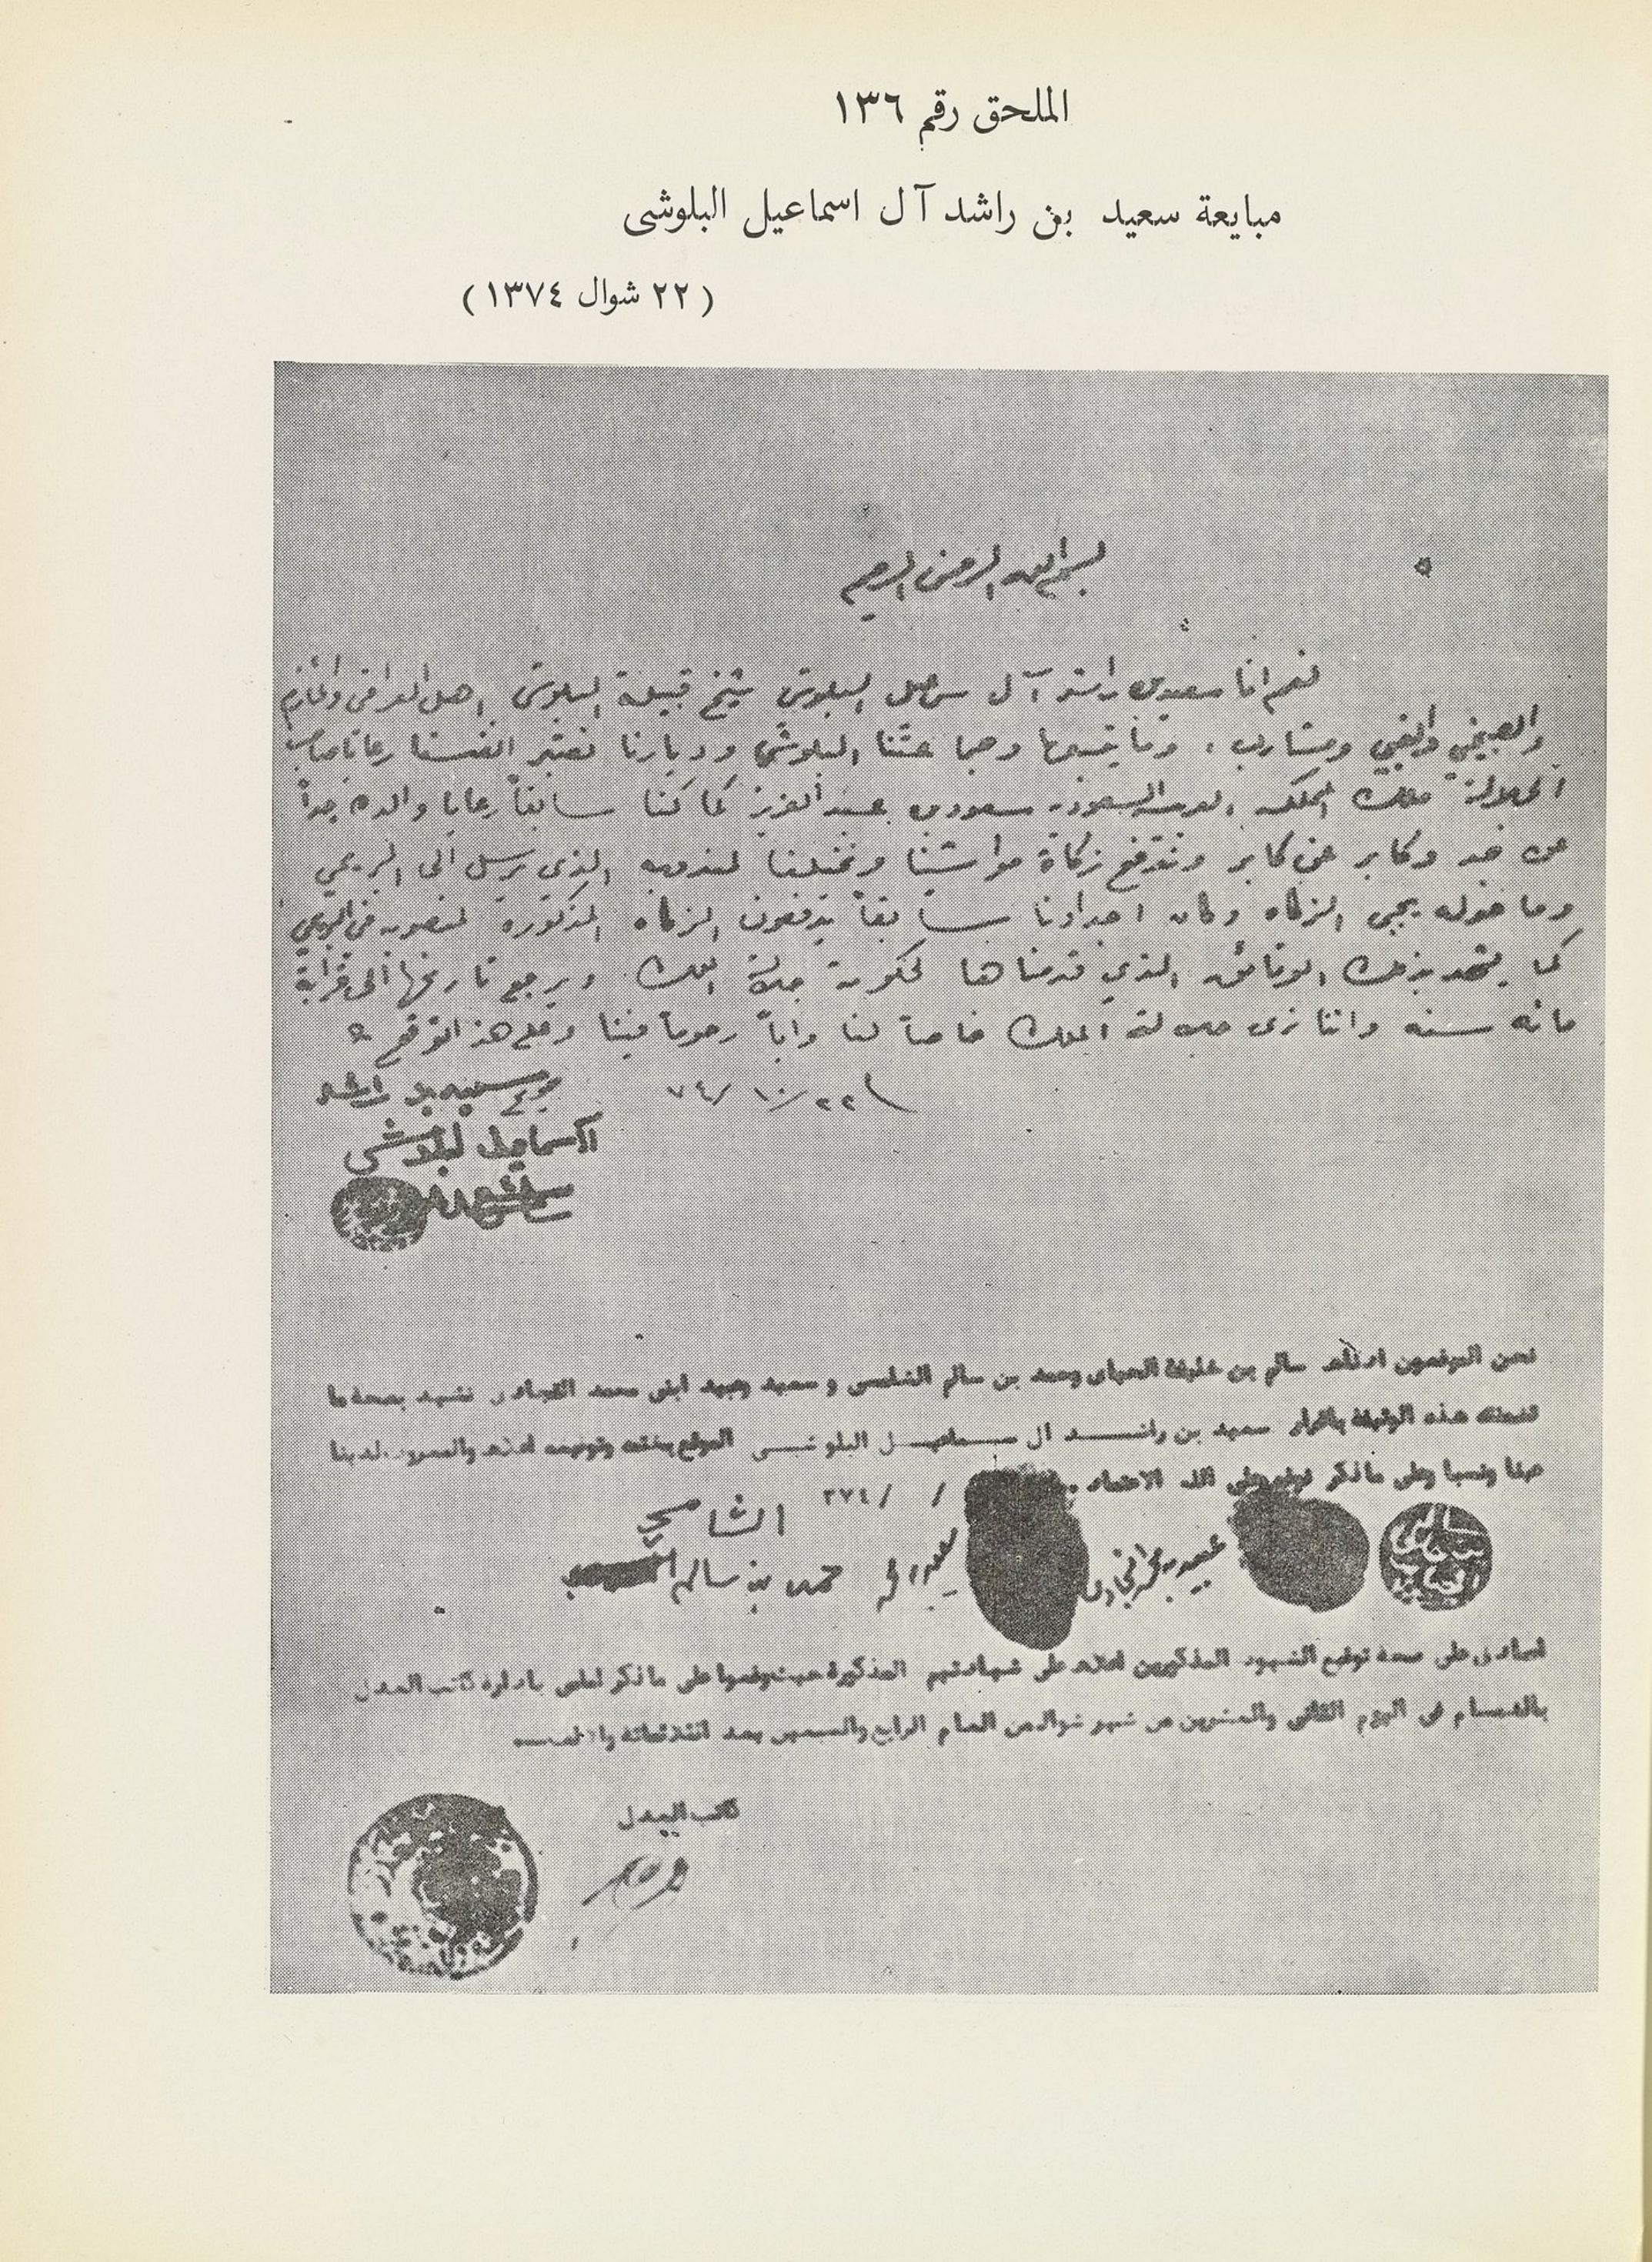 الملحق رقم ١٣٦
مبايعة سعيد بن راشد آل اسماعيل البلوشى
( ٢٢ شوال ١٣٧٤ )
بسم الله الرحمن الرحيم
نعم انا سعيد بن راشد آل سماعيل البلوشي شيخ قبيلة البلوش اهل العراقي والمازم
والصبيخي والفتي ومشارب . وما يتبعها وحيا عشنا البلوشي وديارنا نعتبر انفسنا رعايا صاحب
الجلالة ملك المملكه العربيه السعوديه سعود بن عبد العزيز كما كنا سابقاً رعايا والده جداً
عن جد وكابر عن كابر وندفع زكاة مواشينا ونخيلنا لمندوبه الذي يرسل الى البريمي
وما حوله يجبى الزكاه وكان اجدادنا سابقاً يدفعون الزكاه المذكورة لمنصوب في البريمي
كما يشهد بذلك الوثائق الذي قدمناها لحكومة جلالة الملك ويرجع تاريخها الى قرابة
مائه سنه واننا نرى جلالة الملك خاصاً لنا واباً رحوماً فينا وعلى هذا نوقع
٢٢/ ١٠/ ٧٤
سعيد بن راشد
ال اسماعيل البلوشي
نحن الموقعون ادناه سالم بن خليفة وحمد بن سالم الشامسي و سعيد وعبيد ابني محمد نشهد بصحة ما
تضمنته هذه الوثيقة باقرار سعيد بن راشد ال سماعيل البلوشي الموقع بختمه وتوقيعه اعلاه والمعروف لدينا
عينا ونسبا وعلى ما ذكر نوقع وعلى الله الاعتماد .
/ / ٣٧٤
الشامسي
حمد بن سالم
عبيد بن محمد
نصادق على صحة توقيع الشهود المذكورين اعلاه على شهادتهم المذكورة حيث وقعوا على ما ذكر امامي بادارة كاتب العدل
بالدمام في اليوم الثاني والعشرين من شهر شوال من العام الرابع والسبعين بعد الثلاثمائة والالف
كاتب العدل